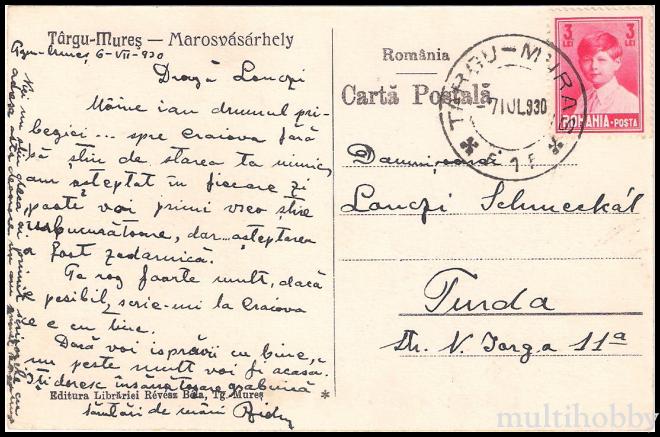 Târgu-Mureș — Marosvásárhely
6-VII-930
Dragă Lonczi
Mâine iau drumul pri-
begiei... spre Craiova fără
să știu de starea ta nimic,
am așteptat în fiecare zi
poate voi primi vreo știre
îmbucurătoare, dar... așteptarea
a fost zadarnică.
Te rog foarte mult, dacă
posibil, scrie-mi la Craiova
ce e cu tine.
Dacă voi isprăvi cu bine,
nu peste mult voi fi acasă.
Îți doresc însănătoșire grabnică
Editura Librăriei Révész Béla, Tg. Mureș
sărutări de mâni
România
Carta Poștală
TÂRGU-MUREȘ
7 IUL 930
3 LEI
3 LEI
ROMANIA-POSTA
Domnișoarei
Lonczi Schmeckál
Turda
Str. N. Iorga 11ª
multihobby